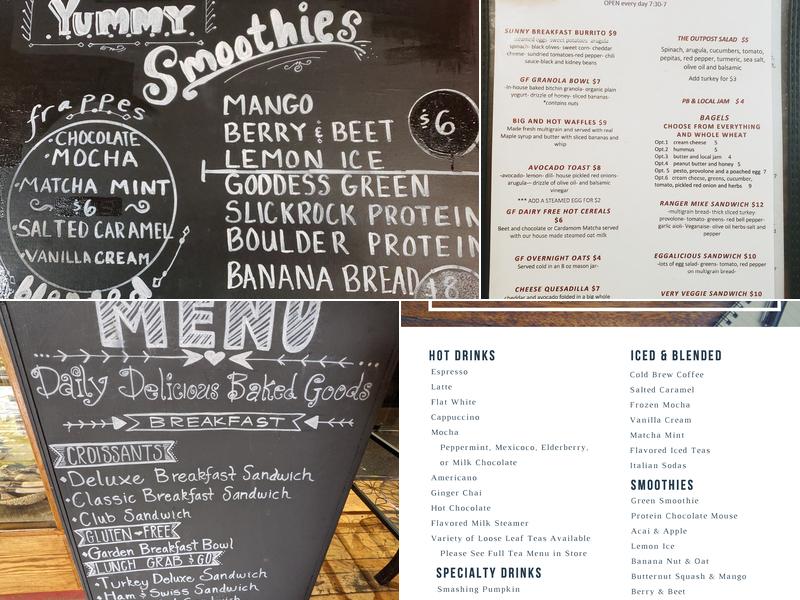 Yummy
Smoothies
frappes
• CHOCOLATE
• MOCHA
• MATCHA MINT
$6
• SALTED CARAMEL
• VANILLA CREAM
blended
MANGO
BERRY & BEET
LEMON ICE
$6
GODDESS GREEN
SLICKROCK PROTEIN
BOULDER PROTEIN
BANANA BREAD
$8
OPEN every day 7:30-7
SUNNY BREAKFAST BURRITO $9
steamed eggs- sweet potatoes- arugula
spinach- black olives- sweet corn- cheddar
cheese- sundried tomatoes-red pepper- chili
sauce-black and kidney beans
GF GRANOLA BOWL $7
-In-house baked bitchin granola- organic plain
yogurt- drizzle of honey- sliced bananas-
*contains nuts
BIG AND HOT WAFFLES $9
Made fresh multigrain and served with real
Maple syrup and butter with sliced bananas and
whip
AVOCADO TOAST $8
-avocado- lemon- dill- house pickled red onions-
arugula— drizzle of olive oil- and balsamic
vinegar
*** ADD A STEAMED EGG FOR $2
GF DAIRY FREE HOT CEREALS
$6
Beet and chocolate or Cardamom Matcha served
with our house made steamed oat milk
GF OVERNIGHT OATS $4
Served cold in an 8 oz mason jar-
CHEESE QUESADILLA $7
cheddar and avocado folded in a big whole
THE OUTPOST SALAD $5
Spinach, arugula, cucumbers, tomato,
pepitas, red pepper, turmeric, sea salt,
olive oil and balsamic
Add turkey for $3
PB & LOCAL JAM $4
BAGELS
CHOOSE FROM EVERYTHING
AND WHOLE WHEAT
Opt.1 cream cheese 5
Opt.2 hummus 5
Opt.3 butter and local jam 4
Opt.4 peanut butter and honey 5
Opt. 5 pesto, provolone and a poached egg 7
Opt.6 cream cheese, greens, cucumber,
tomato, pickled red onion and herbs 9
RANGER MIKE SANDWICH $12
-multigrain bread- thick sliced turkey
provolone- tomato- greens- red bell pepper-
garlic aioli- Veganaise- olive oil herbs-salt and
pepper
EGGALICIOUS SANDWICH $10
-lots of egg salad- greens- tomato, red pepper
on multigrain bread-
VERY VEGGIE SANDWICH $10
MENU
Daily Delicious Baked Goods
BREAKFAST
CROISSANTS
• Deluxe Breakfast Sandwich
• Classic Breakfast Sandwich
• Club Sandwich
GLUTEN-FREE
• Garden Breakfast Bowl
LUNCH GRAB & GO
• Turkey Deluxe Sandwich
• Ham & Swiss Sandwich
HOT DRINKS
Espresso
Latte
Flat White
Cappuccino
Mocha
Peppermint, Mexicoco, Elderberry,
or Milk Chocolate
Americano
Ginger Chai
Hot Chocolate
Flavored Milk Steamer
Variety of Loose Leaf Teas Available
Please See Full Tea Menu in Store
SPECIALTY DRINKS
Smashing Pumpkin
ICED & BLENDED
Cold Brew Coffee
Salted Caramel
Frozen Mocha
Vanilla Cream
Matcha Mint
Flavored Iced Teas
Italian Sodas
SMOOTHIES
Green Smoothie
Protein Chocolate Mouse
Acai & Apple
Lemon Ice
Banana Nut & Oat
Butternut Squash & Mango
Berry & Beet